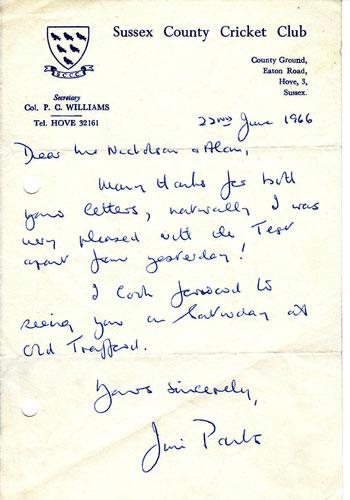 Sussex County Cricket Club
S C C C
County Ground,
Eaton Road,
Hove, 3,
Sussex.
Secretary
Col. P. G. WILLIAMS
Tel. HOVE 32161
22nd June 1966
Dear Mr Nicholson & Alan,
Many thanks for both
your letters, naturally I was
very pleased with the Test
apart from yesterday!
I look forward to
seeing you on Saturday at
Old Trafford.
Yours sincerely,
Jim Parks